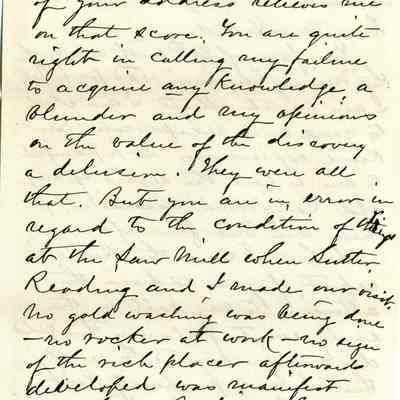 of your address relieves me
on that score. You are quite
right in calling my failure
to acquire any knowledge, a
blunder and my opinions
on the value of the discovery
a delusion. They were all
that. But you are in error in
regard to the condition of things
at the Saw Mill when Sutter,
Reading and I made our visit.
No gold washing was being done
- no rocker at work - no sign
of the rich placer afterwards
developed was manifest